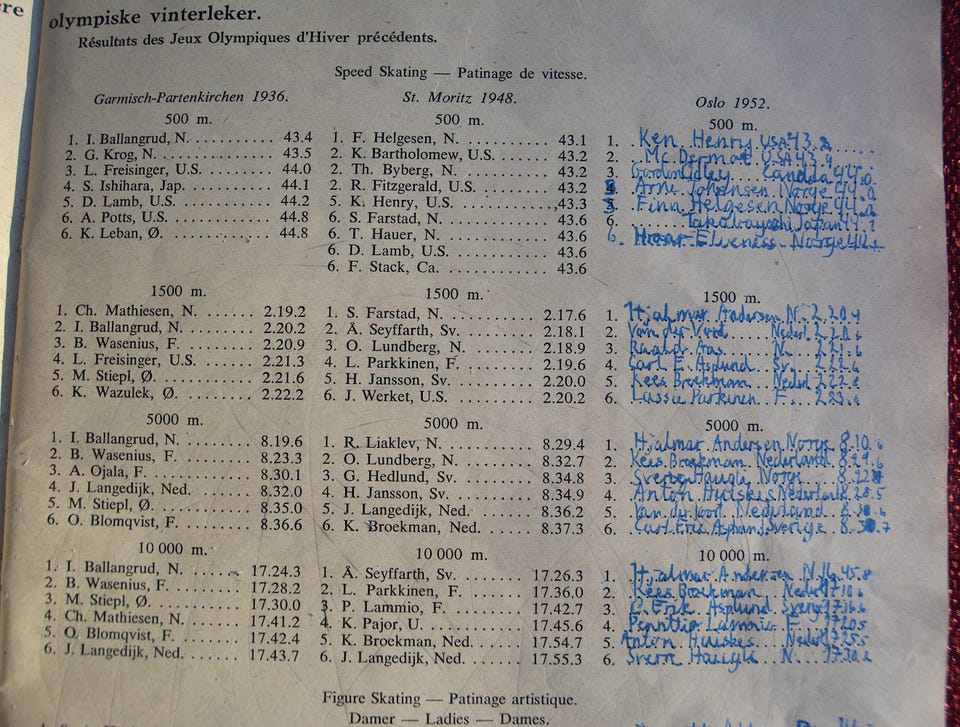 olympiske vinterleker.
Résultats des Jeux Olympiques d'Hiver précédents.
Speed Skating — Patinage de vitesse.
Garmisch-Partenkirchen 1936.
500 m.
1. I. Ballangrud, N. .......... 43.4
2. G. Krog, N. .......... 43.5
3. L. Freisinger, U.S. .......... 44.0
4. S. Ishihara, Jap. .......... 44.1
5. D. Lamb, U.S. .......... 44.2
6. A. Potts, U.S. .......... 44.8
6. K. Leban, Ø. .......... 44.8
1500 m.
1. Ch. Mathiesen, N. ....... 2.19.2
2. I. Ballangrud, N. ....... 2.20.2
3. B. Wasenius, F. ....... 2.20.9
4. L. Freisinger, U.S. ....... 2.21.3
5. M. Stiepl, Ø. ....... 2.21.6
6. K. Wazulek, Ø. ....... 2.22.2
5000 m.
1. I. Ballangrud, N. ....... 8.19.6
2. B. Wasenius, F. ....... 8.23.3
3. A. Ojala, F. ....... 8.30.1
4. J. Langedijk, Ned. ....... 8.32.0
5. M. Stiepl, Ø. ....... 8.35.0
6. O. Blomqvist, F. ....... 8.36.6
10 000 m.
1. I. Ballangrud, N. ....... 17.24.3
2. B. Wasenius, F. ....... 17.28.2
3. M. Stiepl, Ø. ....... 17.30.0
4. Ch. Mathiesen, N. ....... 17.41.2
5. O. Blomqvist, F. ....... 17.42.4
6. J. Langedijk, Ned. ....... 17.43.7
St. Moritz 1948.
500 m.
1. F. Helgesen, N. .......... 43.1
2. K. Bartholomew, U.S. .......... 43.2
2. Th. Byberg, N. .......... 43.2
2. R. Fitzgerald, U.S. .......... 43.2
5. K. Henry, U.S. .......... 43.3
6. S. Farstad, N. .......... 43.6
6. T. Hauer, N. .......... 43.6
6. D. Lamb, U.S. .......... 43.6
6. F. Stack, Ca. .......... 43.6
1500 m.
1. S. Farstad, N. .......... 2.17.6
2. Å. Seyffarth, Sv. .......... 2.18.1
3. O. Lundberg, N. .......... 2.18.9
4. L. Parkkinen, F. .......... 2.19.6
5. H. Jansson, Sv. .......... 2.20.0
6. J. Werket, U.S. .......... 2.20.2
5000 m.
1. R. Liaklev, N. .......... 8.29.4
2. O. Lundberg, N. .......... 8.32.7
3. G. Hedlund, Sv. .......... 8.34.8
4. H. Jansson, Sv. .......... 8.34.9
5. J. Langedijk, Ned. .......... 8.36.2
6. K. Broekman, Ned. .......... 8.37.3
10 000 m.
1. Å. Seyffarth, Sv. ....... 17.26.3
2. L. Parkkinen, F. ....... 17.36.0
3. P. Lammio, F. ....... 17.42.7
4. K. Pajor, U. ....... 17.45.6
5. K. Broekman, Ned. ....... 17.54.7
6. J. Langedijk, Ned. ....... 17.55.3
Oslo 1952.
500 m.
1. Ken Henry USA 43.2
2. Mc.Dermot USA 43.9
3. Canada 44.0
4. Arne Johansen Norge 44.0
5. Finn Helgesen Norge 44.0
6. Takabayashi Japan
6. Norge
1500 m.
1. Hjalmar Andersen N. 2.20.4
2. Van der Nederl. 2.20.6
3. Roald Aas N.
4. Carl E. Asplund Sv.
5. Kees Broekman Nederl 2.22.8
6. Lasse Parkinen F.
5000 m.
1. Hjalmar Andersen Norge 8.10.6
2. Kees Broekman Nederland
3. Sverre Haugli Norge
4. Anton Huiskes Nederland 8.28.5
5. Van der Voort Nederland 8.30.6
6. Carl Erik Sverige 8.30.7
10 000 m.
1. Hjalmar Andersen N. 16.45.8
2. Kees Broekman Nederl 17.10.6
3. C. Erik Asplund Sverg 17.16.6
4. Lammio F. 17.20.5
5. Anton Huiskes Nederl 17.25.5
6. N. 17.30.2
Figure Skating — Patinage artistique.
Damer — Ladies — Dames.